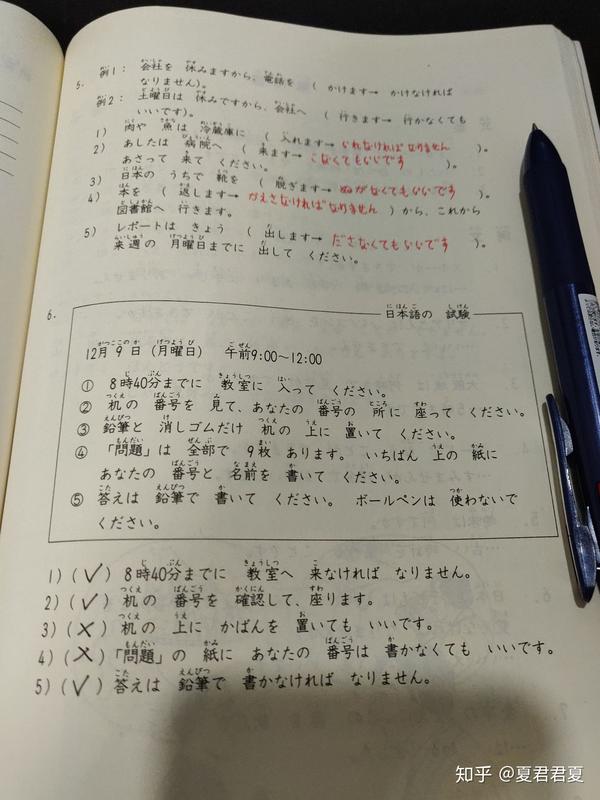 5. 例1： 会社を 休みますから、電話を （ かけます→ かけなければ
なりません）。
例2： 土曜日は 休みですから、会社へ （ 行きます→ 行かなくても
いいです）。
1） 肉や 魚は 冷蔵庫に （ 入れます→ いれなければ なりません ）。
2） あしたは 病院へ （ 来ます→ こなくてもいいです ）。
あさって 来て ください。
3） 日本の うちで 靴を （ 脱ぎます→ ぬがなくてもいいです ）。
4） 本を （ 返します→ かえさなければ なりません ）から、これから
図書館へ 行きます。
5） レポートは きょう （ 出します→ ださなくてもいいです ）。
来週の 月曜日までに 出して ください。
6.
日本語の 試験
12月9日（月曜日） 午前9:00～12:00
① 8時40分までに 教室に 入って ください。
② 机の 番号を 見て、あなたの 番号の 所に 座って ください。
③ 鉛筆と 消しゴムだけ 机の 上に 置いて ください。
④ 「問題」は 全部で 9枚 あります。 いちばん 上の 紙に
あなたの 番号と 名前を 書いて ください。
⑤ 答えは 鉛筆で 書いて ください。 ボールペンは 使わないで
ください。
1）（✓）8時40分までに 教室へ 来なければ なりません。
2）（✓）机の 番号を 確認して、座ります。
3）（✗）机の 上に かばんを 置いても いいです。
4）（✗）「問題」の 紙に あなたの 番号は 書かなくても いいです。
5）（✓）答えは 鉛筆で 書かなければ なりません。
知乎 @夏君君夏